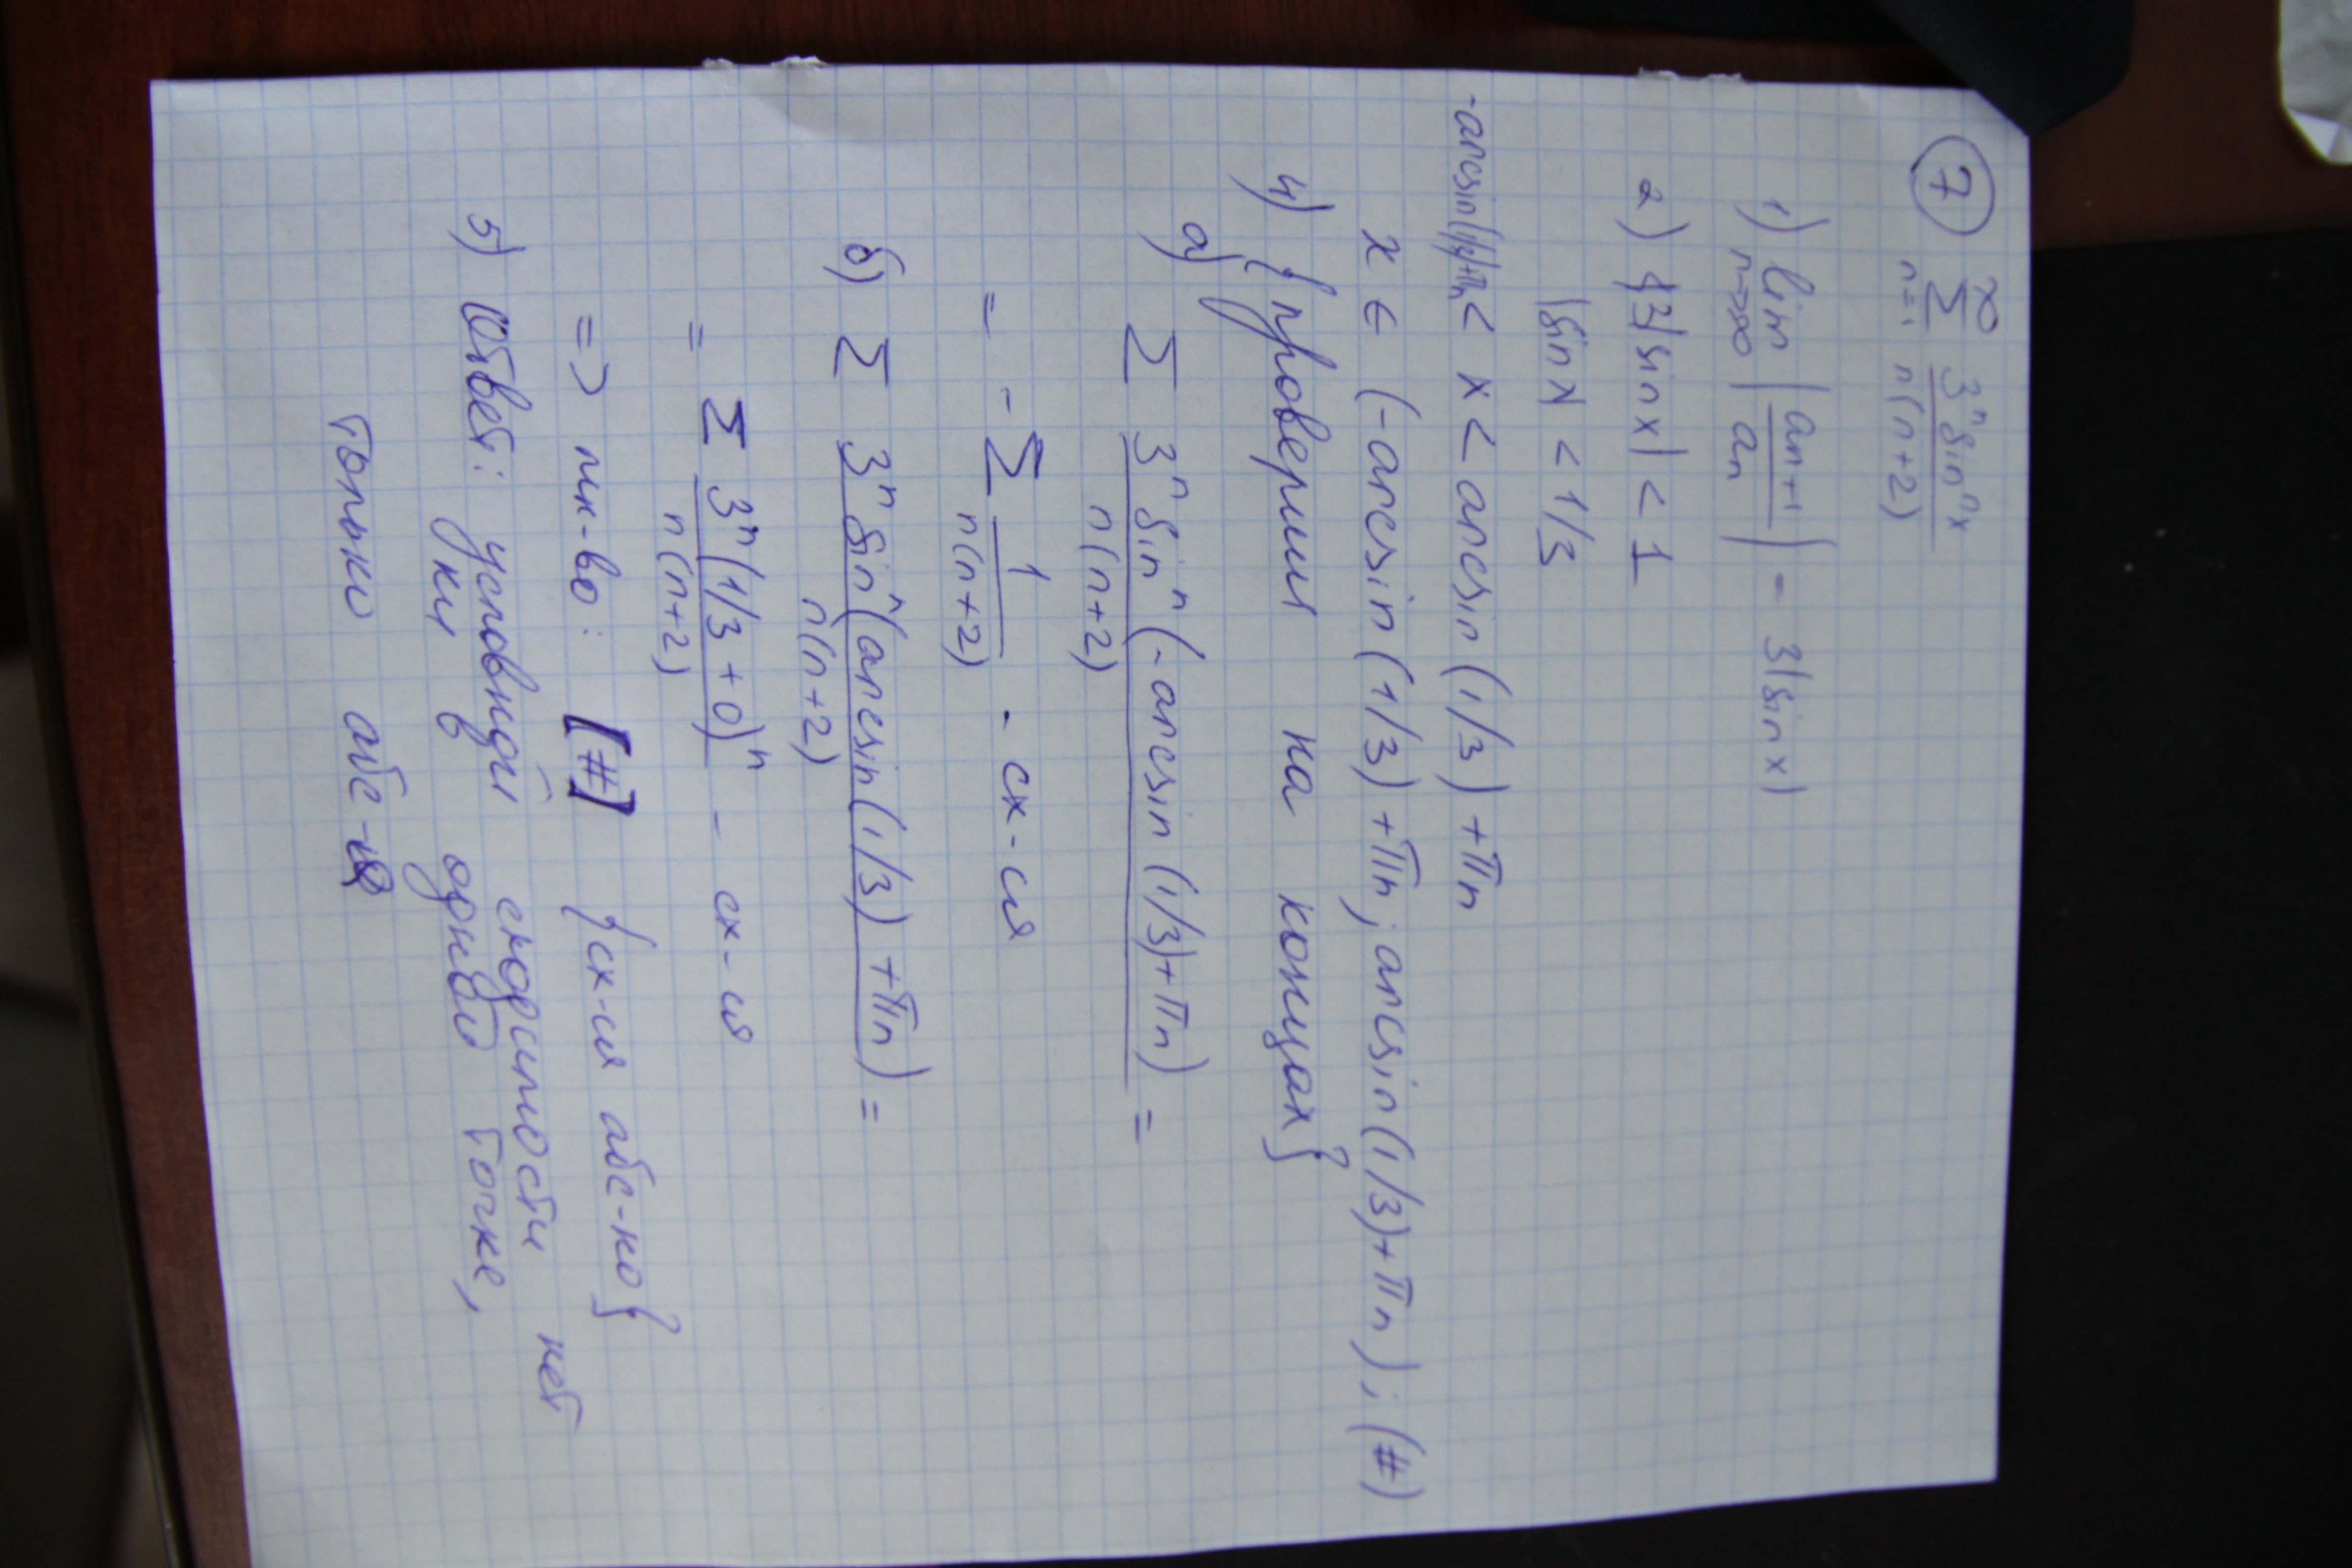 7 ∞ Σ n=1 3ⁿ sinⁿx / n(n+2)
1) lim n→∞ |aₙ₊₁ / aₙ| = 3|sin x|
2) 3|sin x| < 1
|sin x| < 1/3
-arcsin(1/3)+πn < x < arcsin(1/3) + πn
x ∈ (-arcsin(1/3) + πn; arcsin(1/3) + πn); (#)
4) {проверим на концах}
а) Σ 3ⁿ sinⁿ(-arcsin(1/3)+πn) / n(n+2) =
= -Σ 1 / n(n+2) - сх-ся
б) Σ 3ⁿ sinⁿ(arcsin(1/3) + πn) / n(n+2) =
= Σ 3ⁿ(1/3 + 0)ⁿ / n(n+2) - сх-ся
=> мн-во: [#] {сх-ся абс-но}
5) Ответ: условной сходимости нет
ни в одной точке,
только абс-я